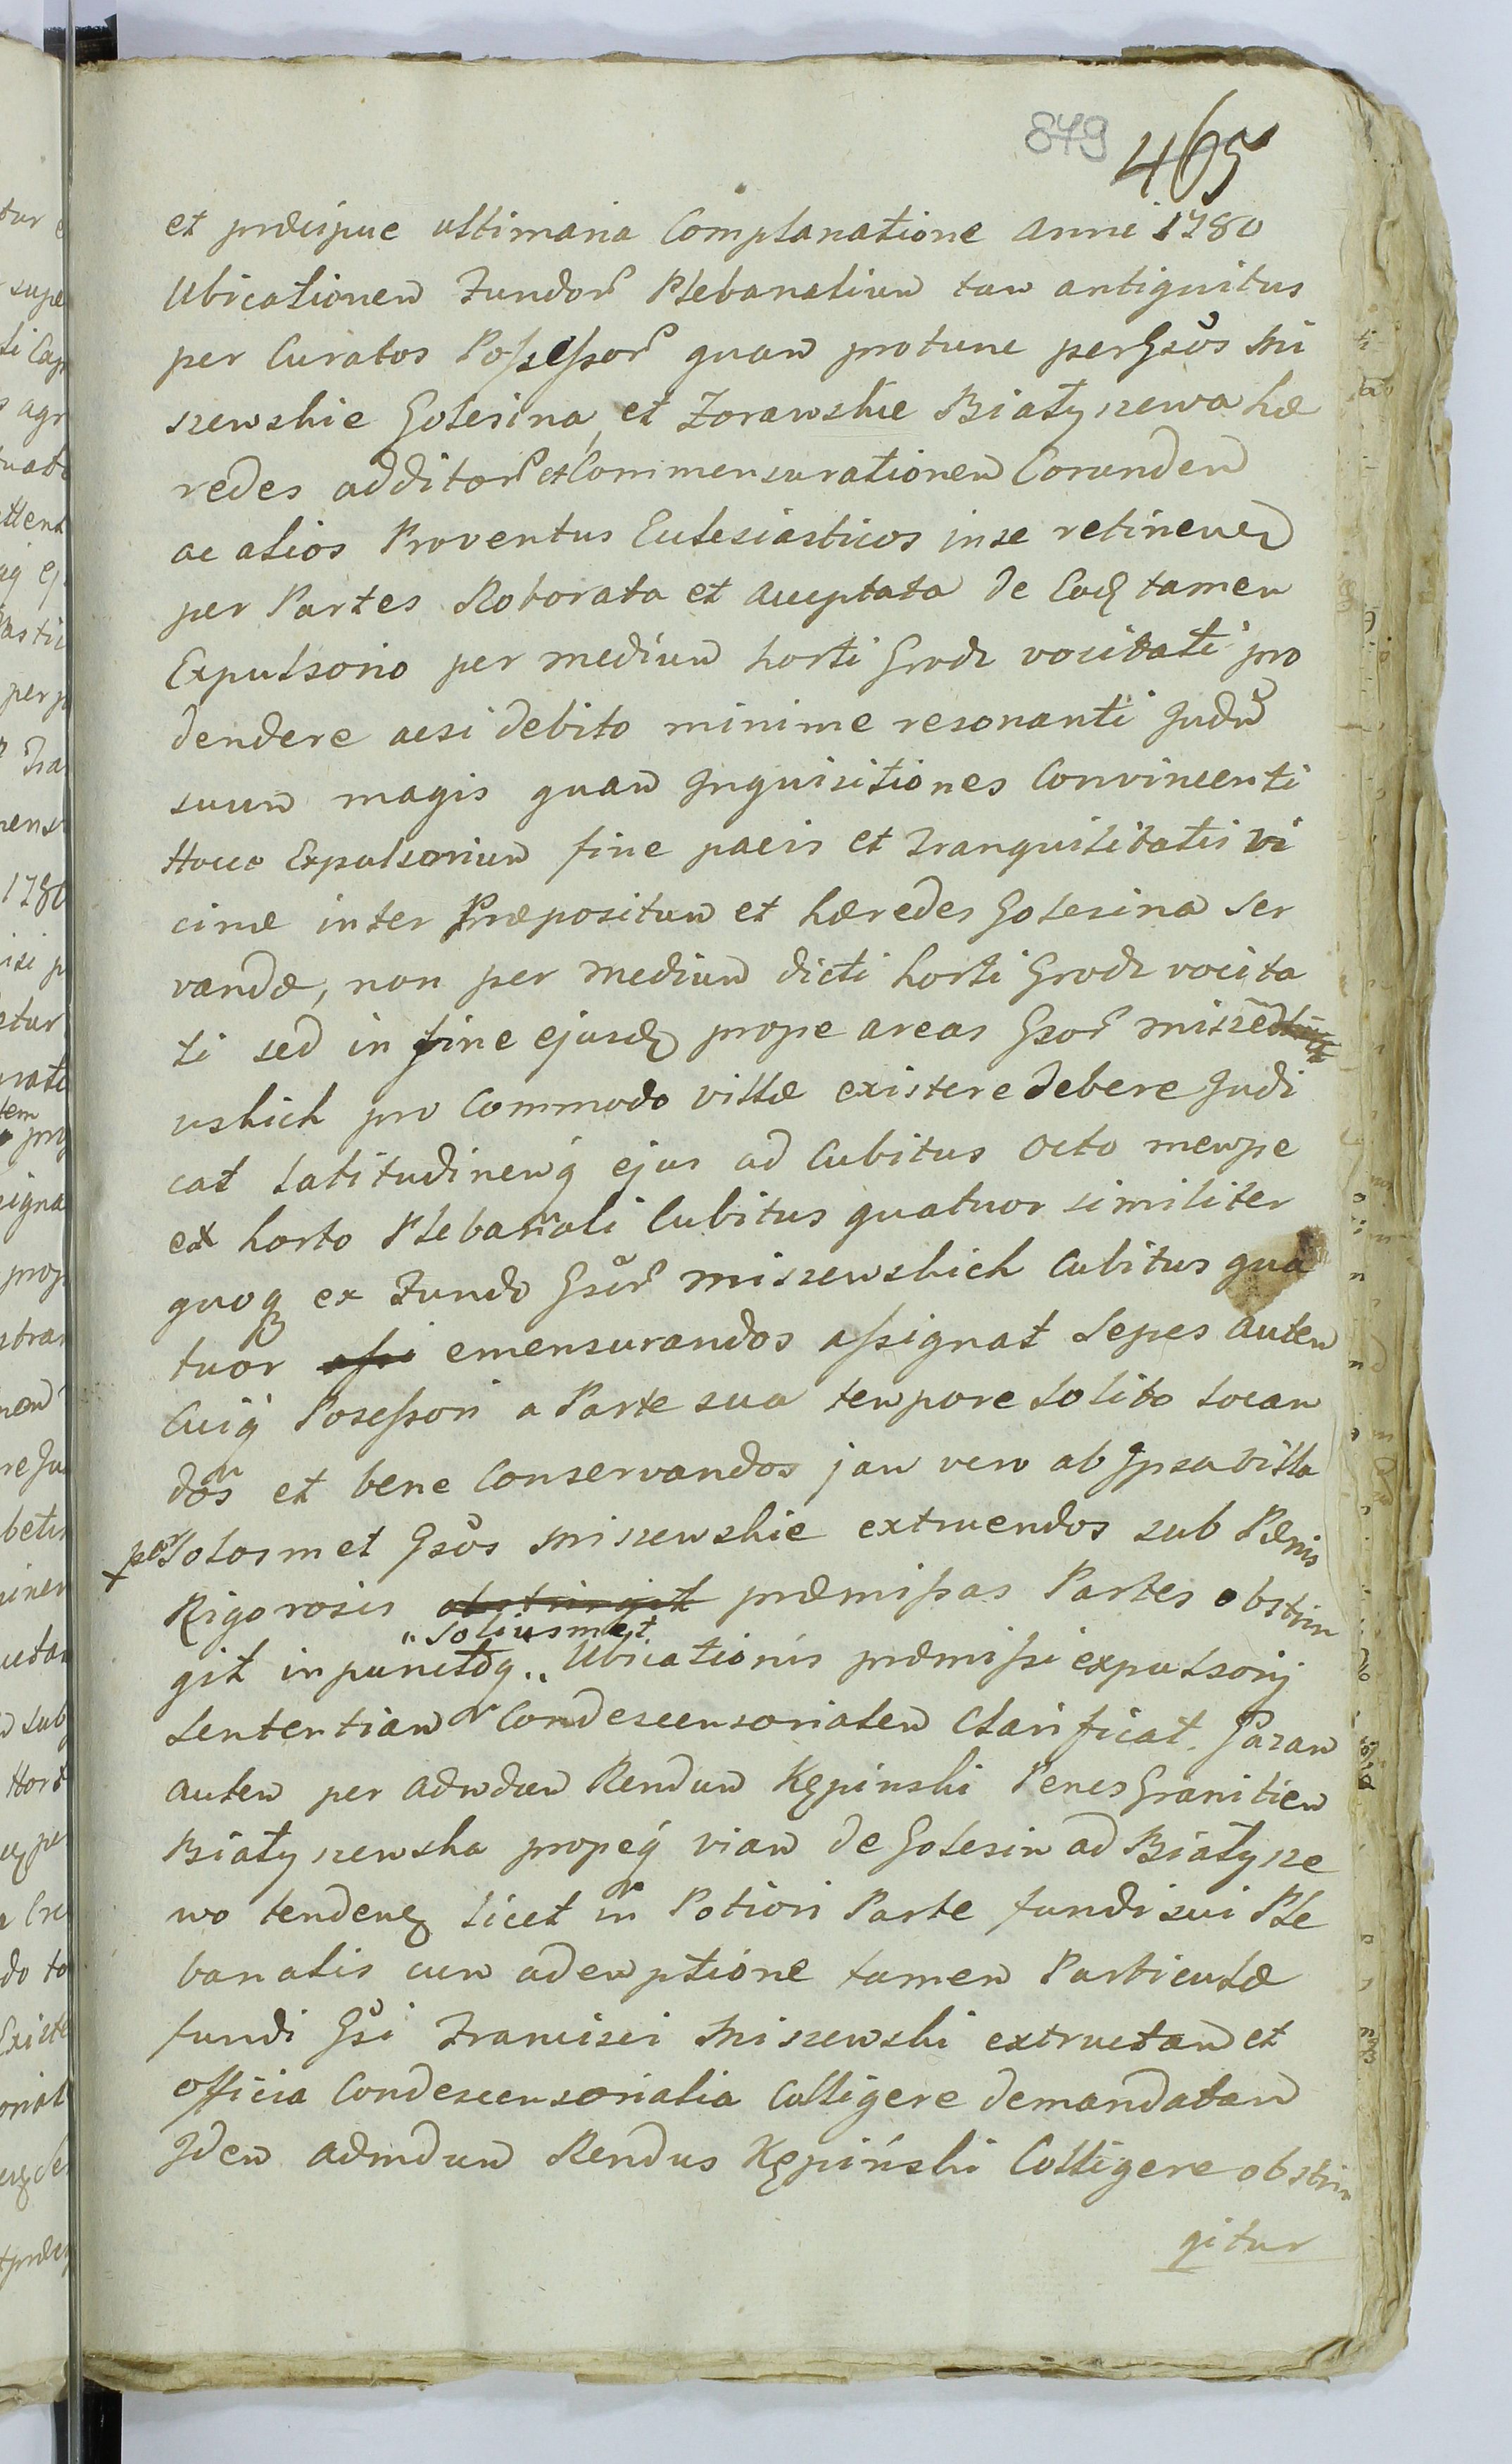 879 465
et præcipue ultimaria Complanatione Anni 1780
Ubicationem Fundor Plebanalium tam antiquitus
per Curatos Possessor quam protunc per Gsos Mi
szewskie Golesina, et Zorawskie Białyszewa hæ
redes additor et Commensurationem Eorundem
ac alios Proventus Ecclesiasticos in se retinen
per Partes Roborata et acceptata de Eod tamen
Expulsorio per medium horti Grodz vocitati pro
dendere acsi debito minime resonanti Judm
suum magis quam Inquisitiones Convincenti
Hocce Expulsorium fine pacis et Tranquilitatis vi
cinæ inter Præpositum et hæredes Golesina Ser
vandæ, non per Medium dicti horti Grodz vocita
ti sed in fine ejusd prope areas Gsor Misze
wskich pro Commodo villæ existere debere Judi
cat Latitudinemq ejus ad Cubitus Octo mempe
ex horto Plebanali Cubitus quatuor similiter
quoq ex Fundo Gsor Miszewskich Cubitus qua
tuor assi emensurandos assignat Sepes Autem
Cuiq Posessori a Parte sua tempore Solito locan
dos et bene Conservandos jam vero ab Ipsa Villa
per Solosmet Gsos Miszewskie extruendos sub Pænis
Rigorosis obstringit præmissas Partes obstrin
git in punctoq Soliusmet Ubicationis præmissi expulsorij
Sententiam Condescensorialem Clarificat. Gazam
Autem per Admdum Rendum Kępinski Penes Granitiem
Białyszewska propeq viam de Golesin ad Białysze
wo tenden licet in Potiori Parte fundi sui Ple
banalis cum ademptione tamen Particulæ
fundi Gsi Francisci Miszewski extructam et
officia Condescensorialia Colligere demandatam
Idem Admdum Rendus Kępiński Colligere obstrin
gitur